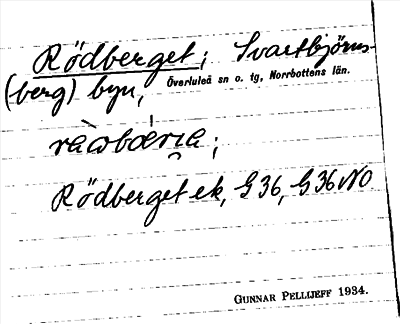 Rödberget; Svartbjörns-
(berg) byn, Överluleå sn o. tg, Norrbottens län.
Rödberget ek, G 36, G 36 NO
GUNNAR PELLIJEFF 1934.